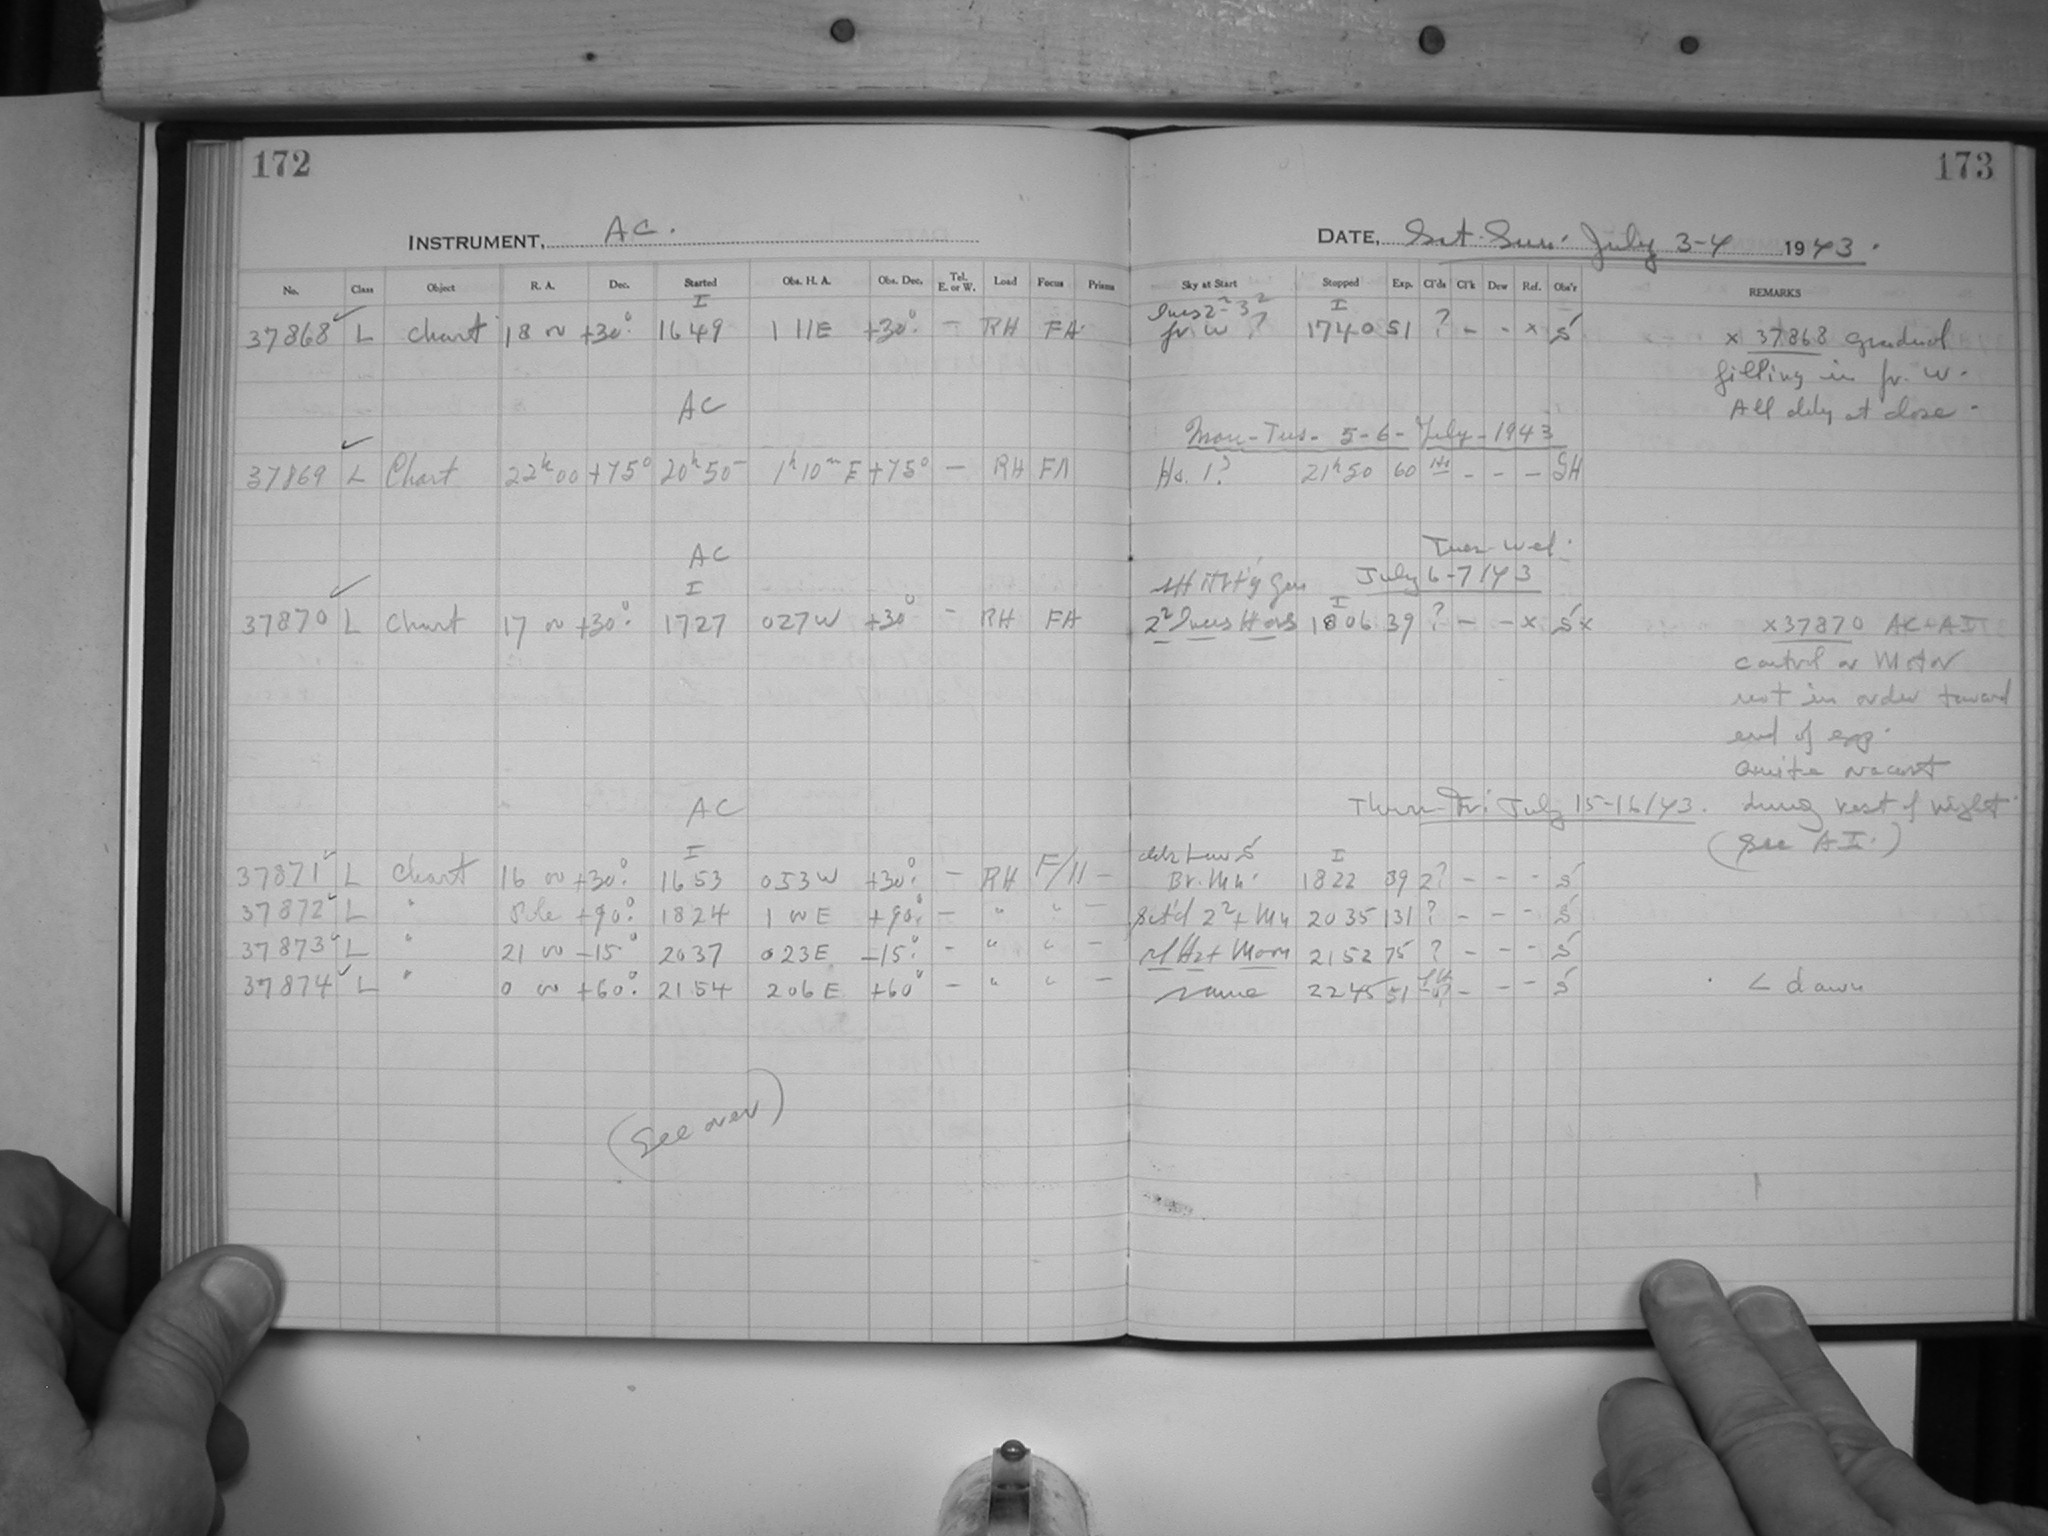 172
173
INSTRUMENT, AC.
DATE, Sat-Sun. July 3-4 1943.
No. Class Object R. A. Dec. Started Obs. H. A. Obs. Dec. Tel. E. or W. Load Focus Prisms Sky at Start Stopped Exp. Cl'ds Cl'k Dew Ref. Obs'r REMARKS
I I
37868 L chart 18 00 +30° 1649 1 11E +30° - RH FA fr. W ? 1740 51 ? - - x S x 37868 gradual
filling in fr. W.
AC All cldy at close.
Mon-Tues- 5-6- July-1943
37869 L Chart 22h00 +75° 20h50 1h10m E +75° - RH FA Hs. 1? 21h50 60 Hs - - - SH
AC Tues-Wed.
I July 6-7/43
I
37870 L Chart 17 00 +30° 1727 027W +30° - RH FA 1806 39 ? - - x S x x 37870 AC + AI
control or Motor
not in order toward
end of exp.
Quite vacant
AC Thurs-Fri July 15-16/43. during rest of night.
(See A I.)
I I
37871 L chart 16 00 +30° 1653 053W +30° - RH F/11 - Br. Mn. 1822 89 2? - - - S
37872 L " Pole +90° 1824 1 00E +90° - " " - Sct'd 2² + Mn 2035 131 ? - - - S
37873 L " 21 00 -15° 2037 023E -15° - " " - Hz + Moon 2152 75 ? - - - S
37874 L " 0 00 +60° 2154 206E +60° - " " - same 2245 51 - - - S < dawn
(See over)